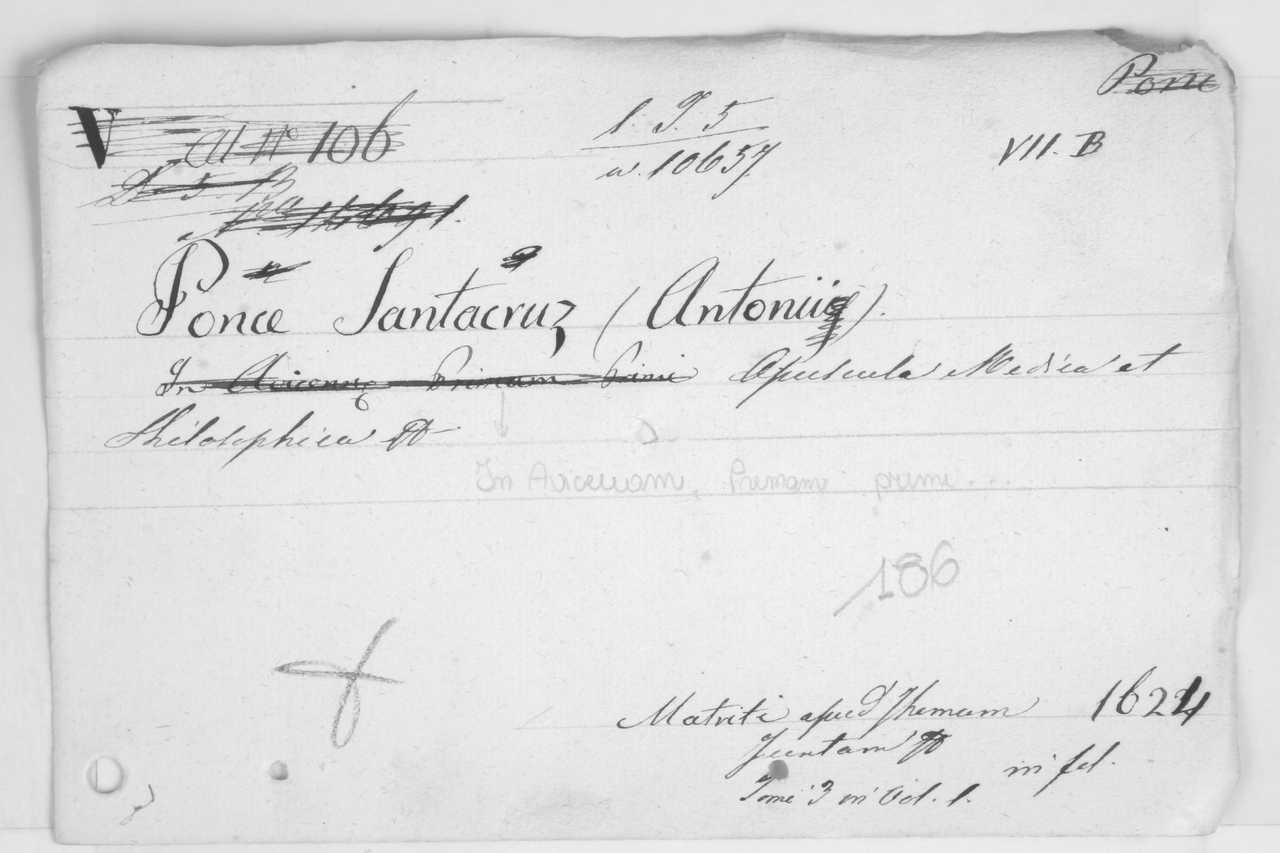 Ponc
V Al Nº 106
1. J. 5
VII. B
w. 10657.
D 5 B
Ponce Santacruz (Antonii).
In Avicennę Primam Primi Opuscula Medica et
Philosophica
In Avicenam, Primam primi...
186
Matriti apud Thomam 1624
Juntam
in fol.
Tomi 3 in Vol. 1.